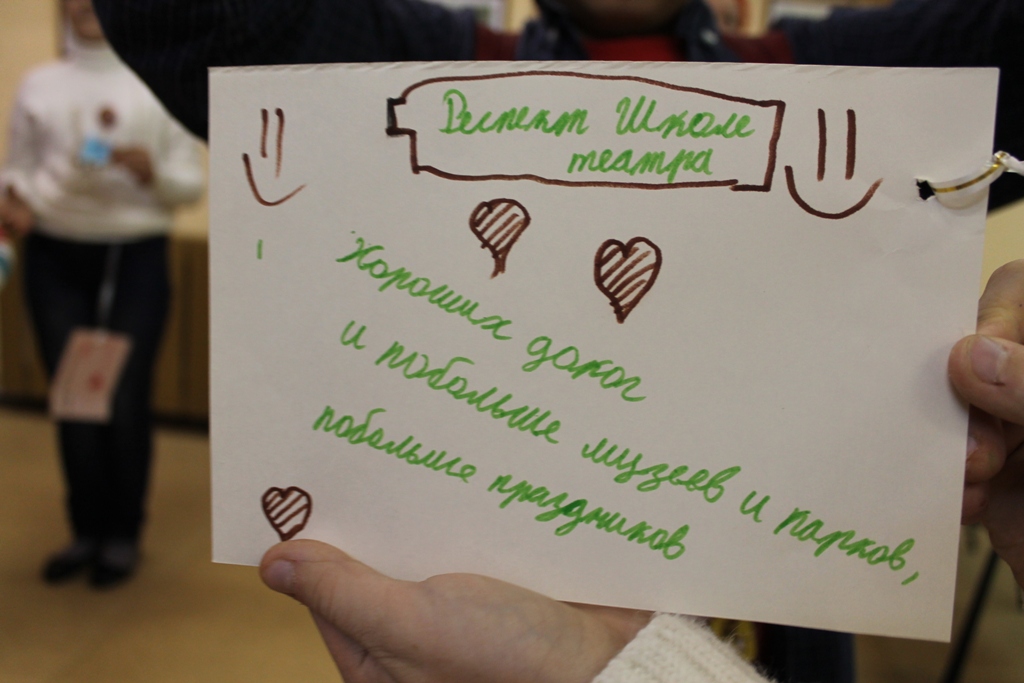 Респект Школе
театра
Хороших дорог
и побольше музеев и парков,
побольше праздников